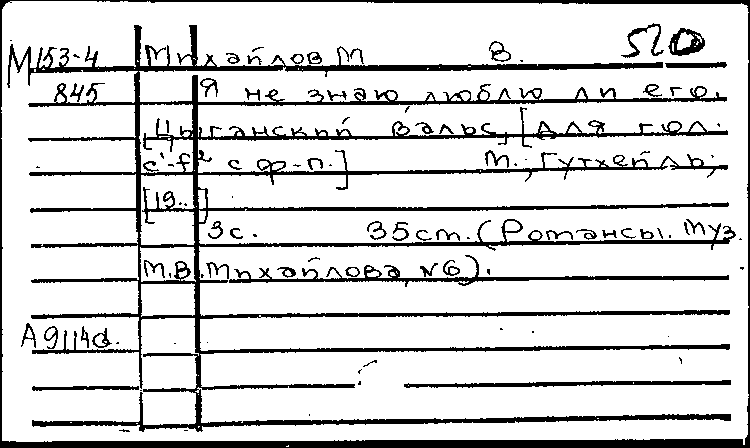 М153-4 Михайлов, М. В. 520
845 Я не знаю, люблю ли его.
Цыганский вальс, [Для гол.
c¹-f² с ф-п.] М.; Гутхейль;
[19..]
3с. 35см. (Романсы. Муз.
М.В. Михайлова, №6).
А9114d.